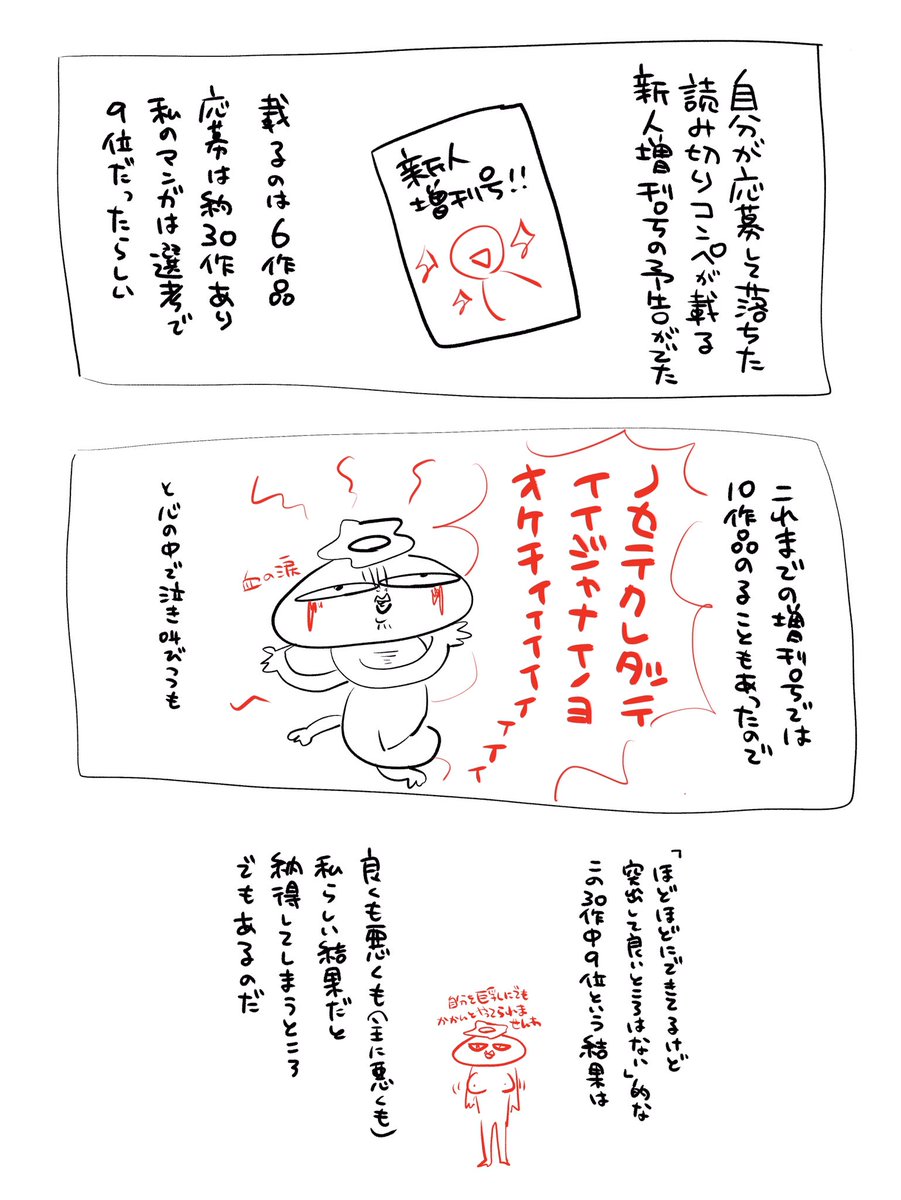 自分が応募して落ちた
読み切りコンペが載る
新人増刊号の予告がでた
新人
増刊号!!
載るのは6作品
応募は約30作あり
私のマンガは選考で
9位だったらしい
これまでの増刊号では
10作品のることもあったので
ノメテクレダッテ
イイジャナイノヨ
オケチィィィィィィィ
血の涙
と心の中で泣き叫びつつも
「ほどほどにできてるけど
突出して良いところはない」的な
この30作中9位という結果は
自分を巨乳にでも
かかんとやってられま
せんわ
良くも悪くも(主に悪くも)
私らしい結果だと
納得してしまうところ
でもあるのだ